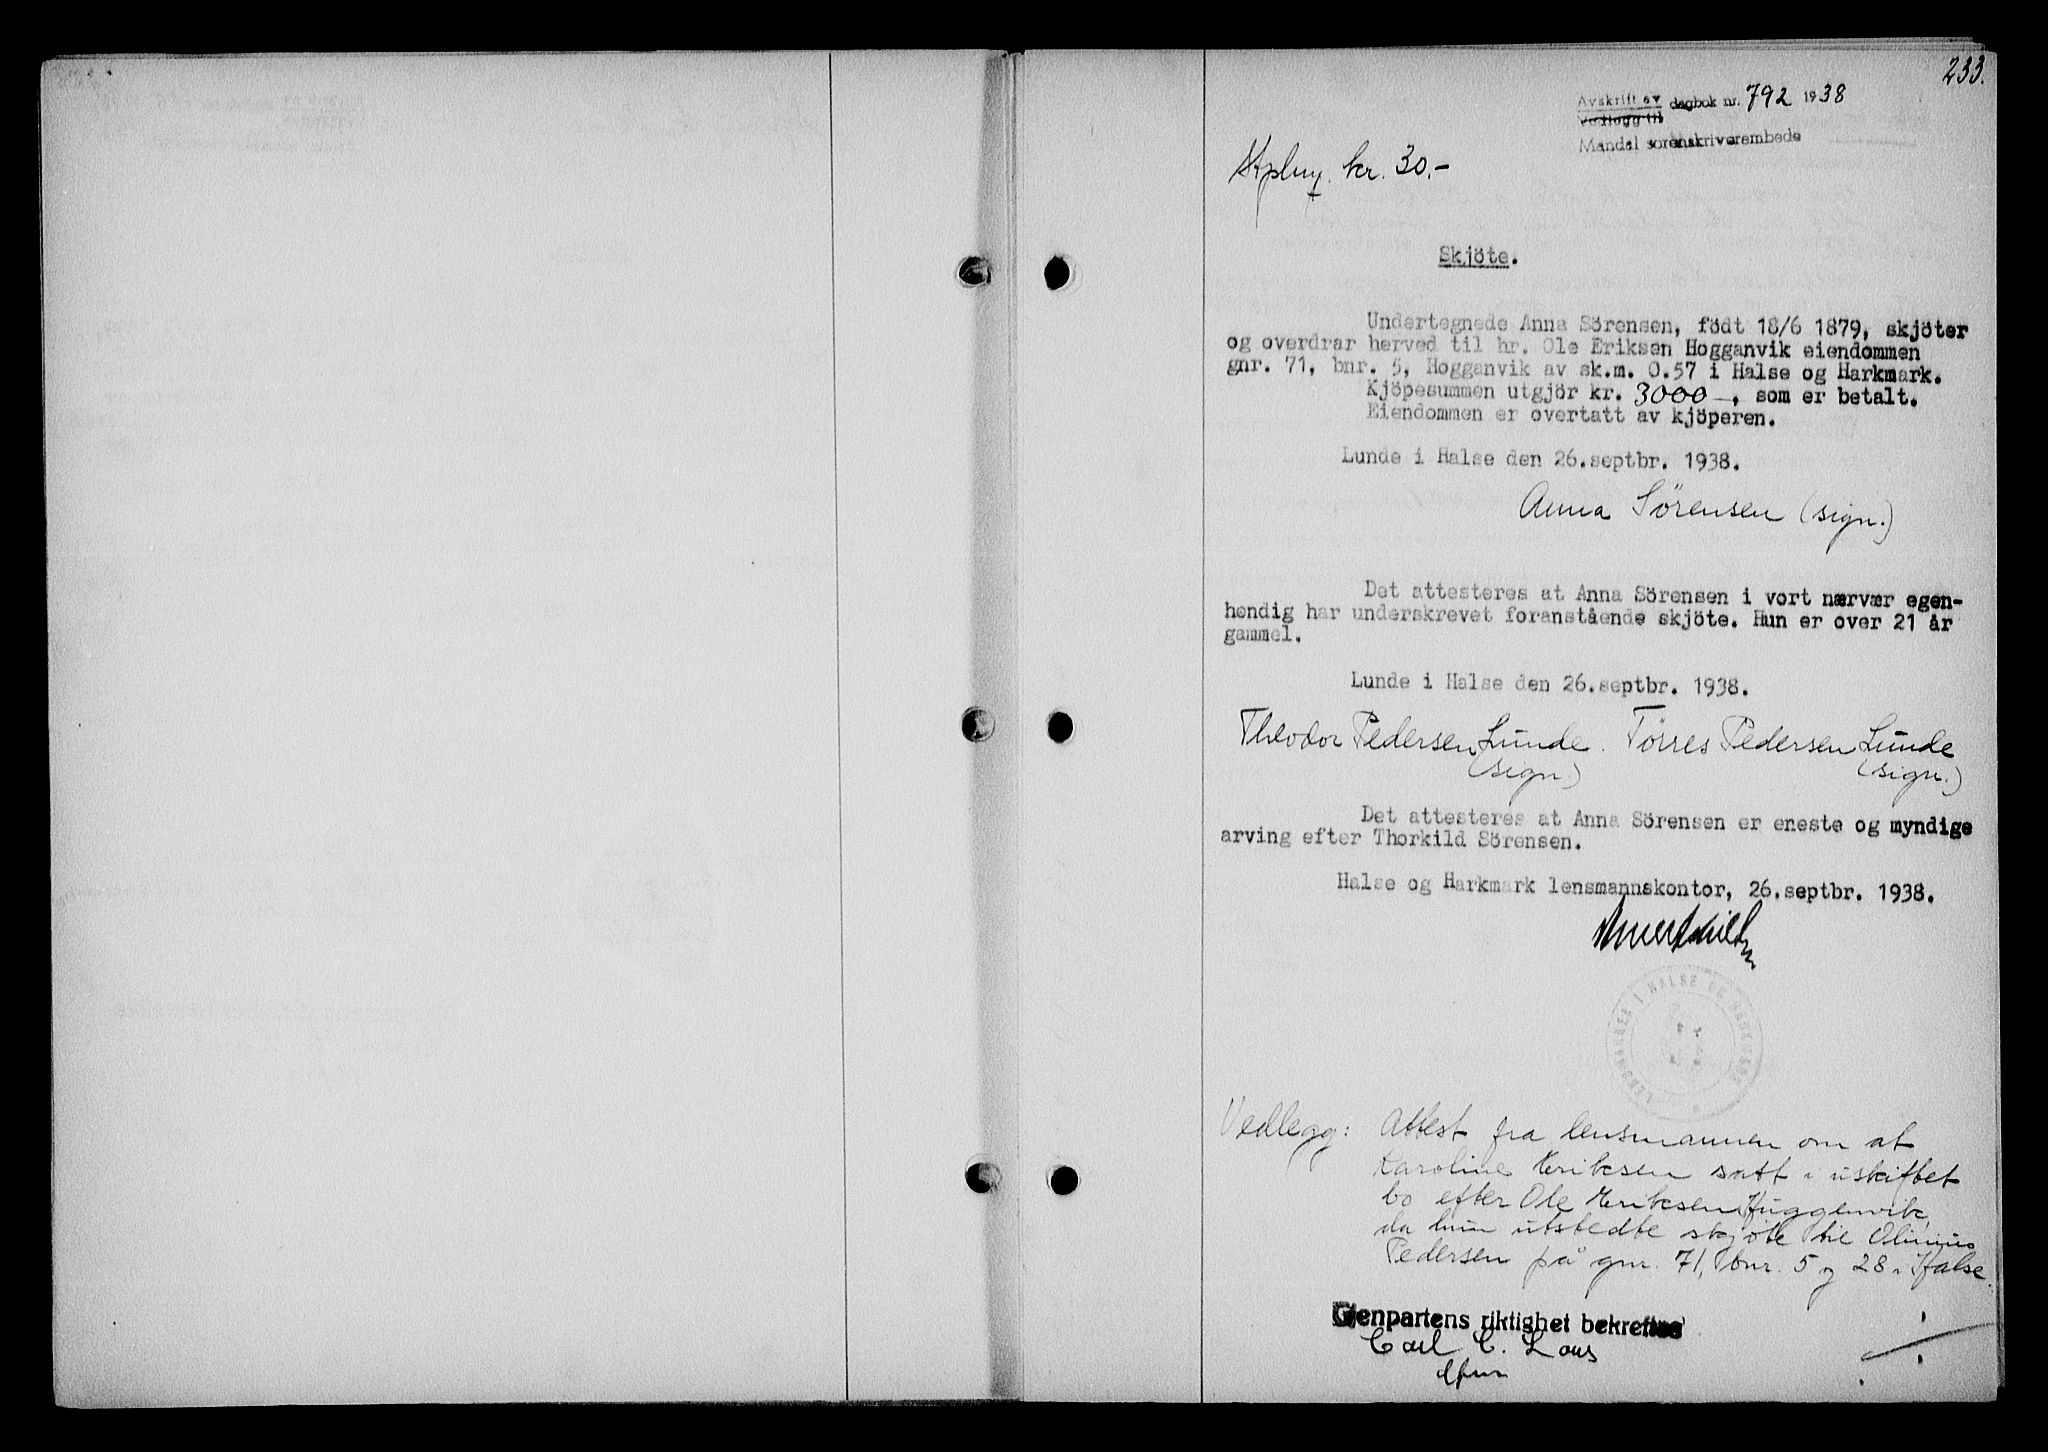 233.
Avskrift av dagbok nr. 792 1938
Vedlegg til
Mandal sorenskriverembede
kr. 30.-
Skjöte.
Undertegnede Anna Sörensen, födt 18/6 1879, skjöter
og overdrar herved til hr. Ole Eriksen Hogganvik eiendommen
gnr. 71, bnr. 5, Hogganvik av sk.m. 0.57 i Halse og Harkmark.
Kjöpesummen utgjör kr. 3000 -, som er betalt.
Eiendommen er overtatt av kjöperen.
Lunde i Halse den 26.septbr. 1938.
Anna Sørensen (sign.)
Det attesteres at Anna Sörensen i vort nærvær egen-
hendig har underskrevet foranstående skjöte. Hun er over 21 år
gammel.
Lunde i Halse den 26.septbr. 1938.
Theodor Pedersen Lunde. Tørres Pedersen Lunde
(sign.) (sign.)
Det attesteres at Anna Sörensen er eneste og myndige
arving efter Thorkild Sörensen.
Halse og Harkmark lensmannskontor, 26.septbr. 1938.
LENSMANNEN I HALSE OG HARKMARK
Vedlegg: Attest fra lensmannen om at
Karoline Eriksen satt i uskiftet
bo efter Ole Eriksen Huggenvik,
da hun utstedte skjøte til Olinius
Pedersen på gnr. 71, bnr. 5 og 28 i Halse.
Gjenpartens riktighet bekreftes
Carl C. Lous